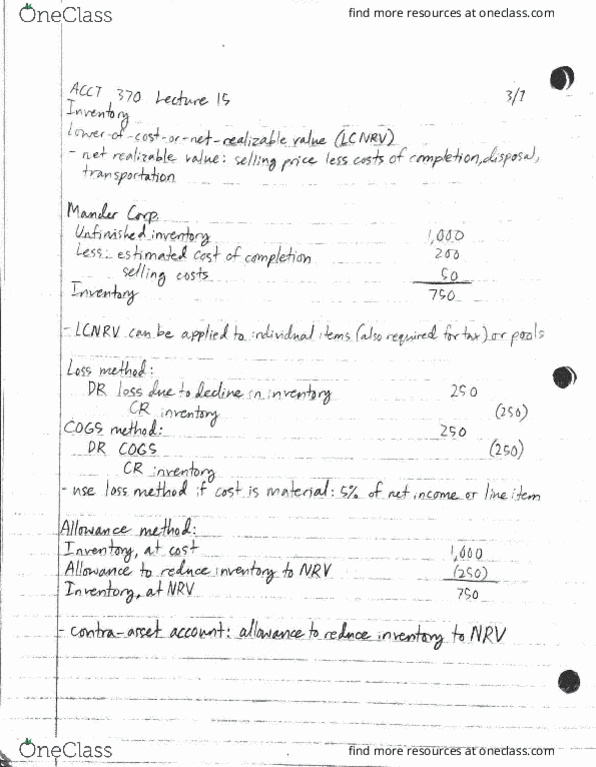 OneClass
find more resources at oneclass.com
ACCT 370 Lecture 15 3/7
Inventory
Lower-of-cost-or-net-realizable value (LCNRV)
- net realizable value: selling price less costs of completion, disposal,
transportation
Mander Corp.
Unfinished inventory 1,000
Less: estimated cost of completion 200
selling costs 50
Inventory 750
- LCNRV can be applied to individual items (also required for tax) or pools
Loss method:
DR loss due to decline in inventory 250
CR inventory (250)
COGS method: 250
DR COGS (250)
CR inventory
- use loss method if cost is material: 5% of net income or line item
Allowance method:
Inventory, at cost 1,000
Allowance to reduce inventory to NRV (250)
Inventory, at NRV 750
- contra-asset account: allowance to reduce inventory to NRV
OneClass
find more resources at oneclass.com